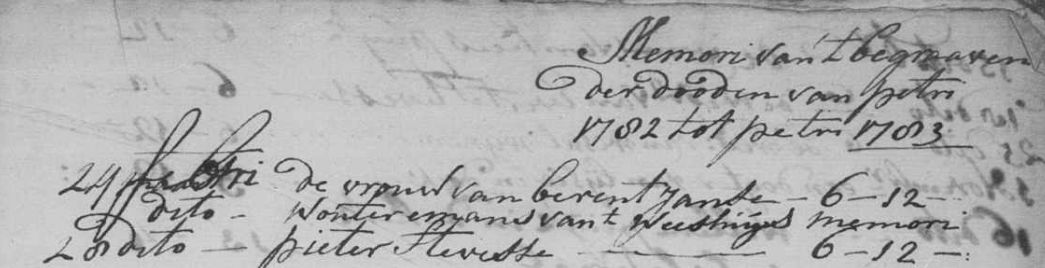 Memori van't begraaven
der dooden van petri
1782 tot petri 1783
24 de vrouw van berent Janse - 6-12 -
dito - Wouter emans van't Weeshuijs memori
28 dito - pieter Stevesse - 6-12 -